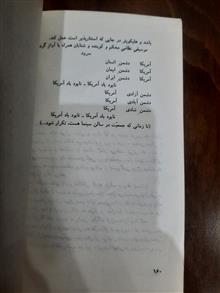 باشد و هلیکوپتر در جایی که استتارپذیر است، عمل کند.
موسیقی نظامی محکم و کوبنده و شتابان همراه با آواز گروه
سرود
آمریکا دشمن انسان
آمریکا دشمن ایمان
آمریکا دشمن ایران
نابود باد آمریکا ـ نابود باد آمریکا
دشمن آزادی آمریکا
دشمن آبادی آمریکا
دشمن شادی آمریکا
نابود باد آمریکا ـ نابود باد آمریکا
(تا زمانی که جمعیت در سالن سینما هست، تکرار شود.)
۱۶۰